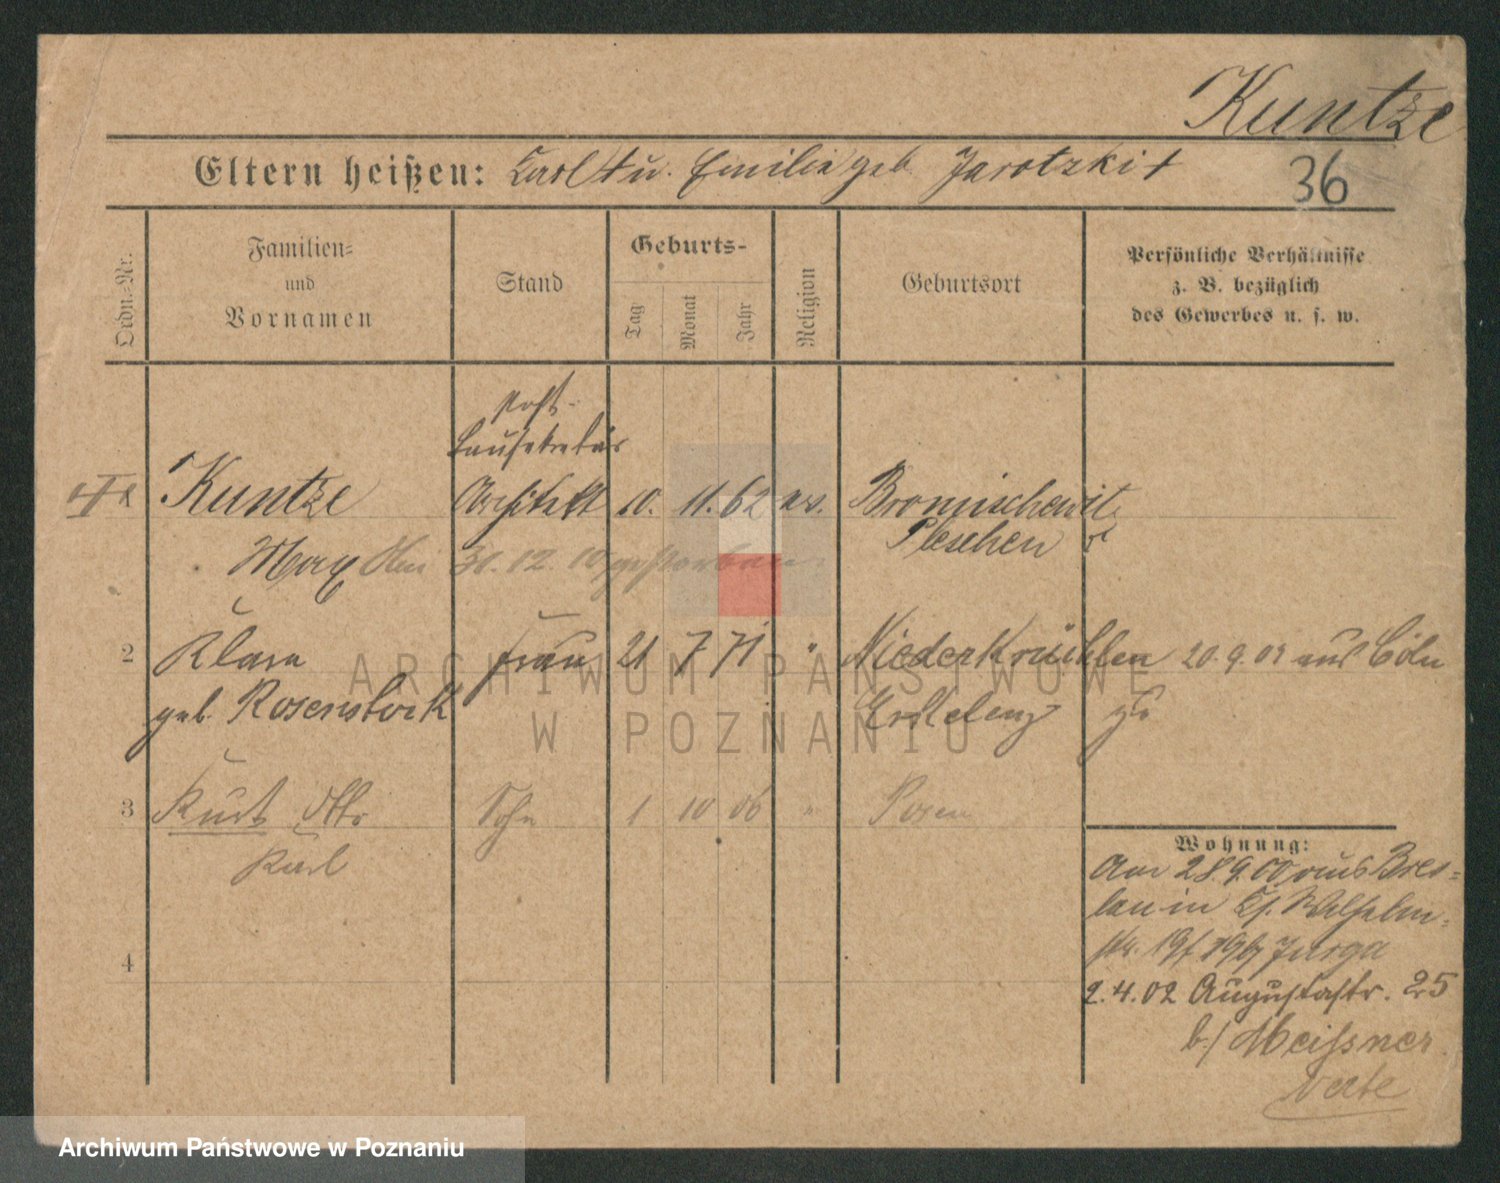 Kuntze
Eltern heißen: Carl † u. Emilie geb. Jarotzki †
36
Ordn.-Nr.
Familien-
und
Vornamen
Stand
Geburts-
Tag
Monat
Jahr
Religion
Geburtsort
Persönliche Verhältnisse
z. B. bezüglich
des Gewerbes u. s. w.
Post-
bausekretär
Kuntze Architekt 10. 11. 62 ev. Bronischewitz
Pleschen
Max 31. 12. 10 gestorben
2 Klara Frau 21 7 71 " Niederkrüchten 20. 9. 01 aus Cöln
geb. Rosenstock Erkelenz
3 Kurt Otto Sohn 1 10 06 " Posen
Karl
4
Wohnung:
Am 28.9.00 aus Bres-
lau in Wilhelm-
str. Jurga
2.4.02 Augustastr. 25
b./ Meissner
verte
ARCHIWUM PAŃSTWOWE
W POZNANIU
Archiwum Państwowe w Poznaniu